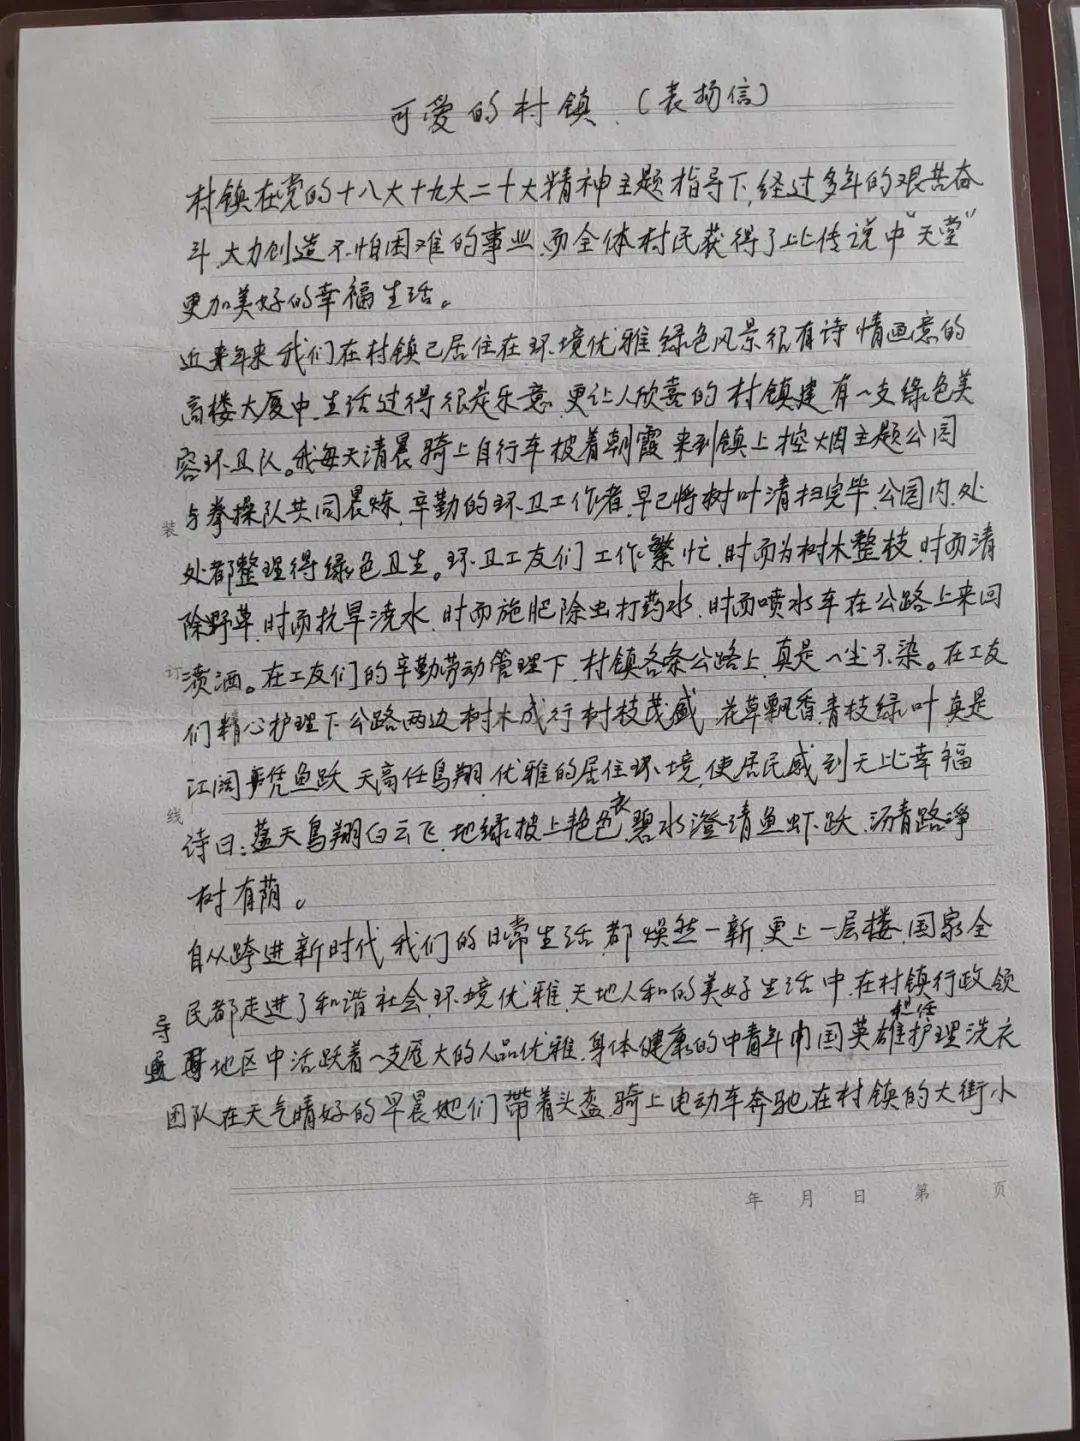 可爱的村镇.(表扬信)
村镇在党的十八大十九大二十大精神主题指导下,经过多年的艰苦奋
斗,大力创造不怕困难的事业,而全体村民获得了比传说中"天堂"
更加美好的幸福生活。
近来年来我们在村镇已居住在环境优雅绿色风景很有诗情画意的
高楼大厦中,生活过得很是乐意,更让人欣喜的村镇建有一支绿色美
容环卫队。我每天清晨骑上自行车披着朝霞来到镇上控烟主题公园
与拳操队共同晨炼,辛勤的环卫工作者,早已将树叶清扫完毕,公园内,处
处都整理得绿色卫生。环卫工友们工作繁忙,时而为树木整枝,时而清
除野草,时而抗旱浇水,时而施肥除虫打药水,时而喷水车在公路上来回
喷洒。在工友们的辛勤劳动管理下,村镇各条公路上,真是一尘不染。在工友
们精心护理下公路两边树木成行树枝茂盛,花草飘香,青枝绿叶,真是
江阔凭鱼跃,天高任鸟翔,优雅的居住环境,使居民感到无比幸福
诗曰:蓝天鸟翔白云飞,地绿披上艳色衣,碧水澄清鱼虾跃,沥青路净
树有荫。
自从跨进新时代,我们的日常生活,都焕然一新,更上一层楼,国家全
民都走进了和谐社会,环境优雅,天地人和的美好生活中,在村镇行政领
导地区中活跃着一支庞大的人品优雅,身体健康的中青年巾国英雄担任护理洗衣
团队在天气晴好的早晨她们带着头盔,骑上电动车奔驰在村镇的大街小
装
订
线
年 月 日 第 页